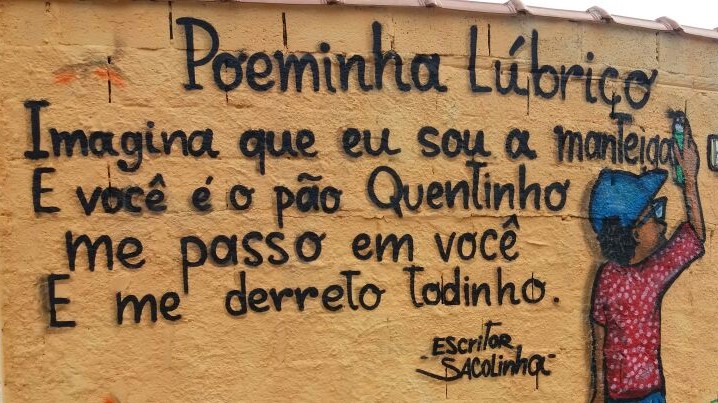 Poeminha Lúbriço
Imagina que eu sou a manteiga
E você é o pão Quentinho
me passo em você
E me derreto todinho.
Escritor
Sacolinha